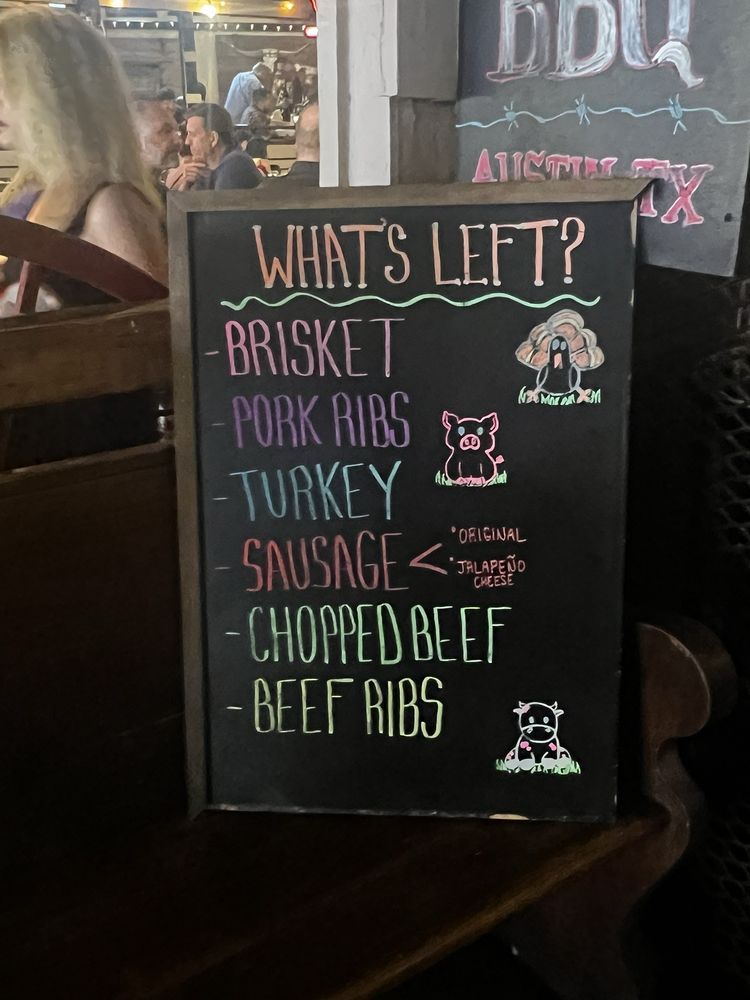 BBQ
AUSTIN, TX
WHAT'S LEFT?
- BRISKET
- PORK RIBS
- TURKEY
- SAUSAGE < • ORIGINAL
• JALAPEÑO
CHEESE
- CHOPPED BEEF
- BEEF RIBS